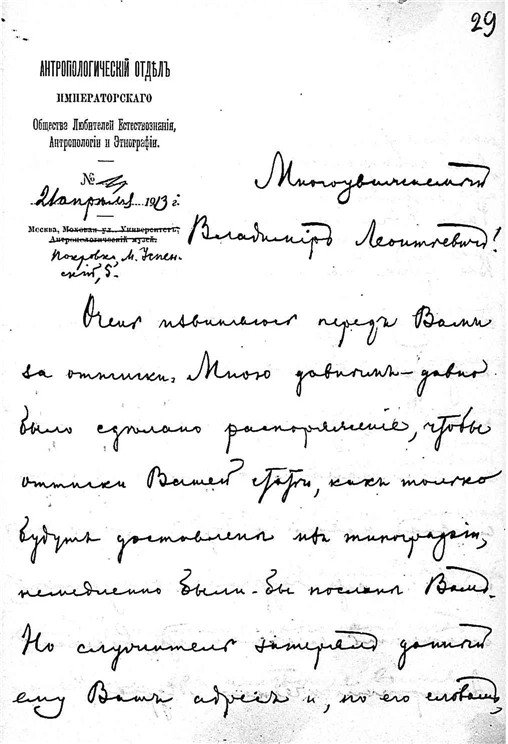 29
АНТРОПОЛОГИЧЕСКІЙ ОТДѢЛЪ
ИМПЕРАТОРСКАГО
Общества Любителей Естествознанія,
Антропологіи и Этнографіи.
№
21 апрѣля 1913 г.
Москва, Моховая ул., Университетъ,
Антропологическій музей.
Покровка, М. Успен-
скій, 5.
Многоуважаемый
Владиміръ Леонтьевичъ!
Очень извиняюсь передъ Вами
за оттиски. Мною давнымъ-давно
было сдѣлано распоряженіе, чтобы
оттиски Вашей статьи, какъ только
будутъ доставлены изъ типографіи,
немедленно были-бы посланы Вамъ.
Но служитель затерялъ данный
ему Вашъ адресъ и, по его словамъ,